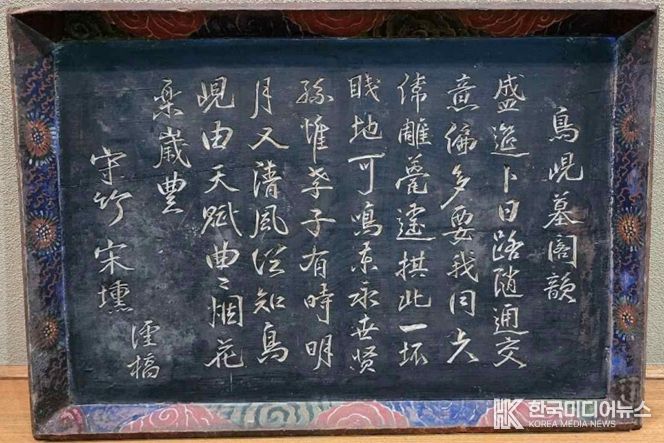 鳥峴墓閣韻
盛筵卜日路隨通交
意偏多要我同
雕甍拱此一坏
地可鳴東永世賢
孫惟孝子有時明
月又清風從知鳥
峴由天賦曲〻烟花
樂歲豊
守竹宋壎
謹稿
HK 한국미디어뉴스
KOREA MEDIA NEWS